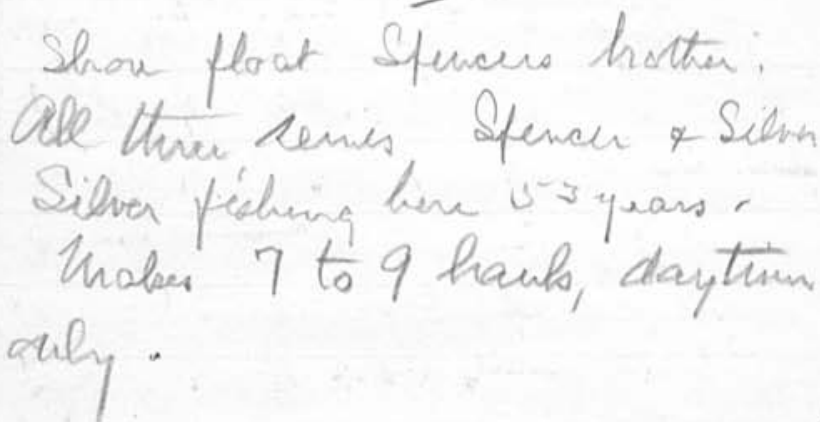 Shore float Spencers brother.
All three seines Spencer & Silver
Silver fishing here 53 years.
Makes 7 to 9 hauls, daytime
only.